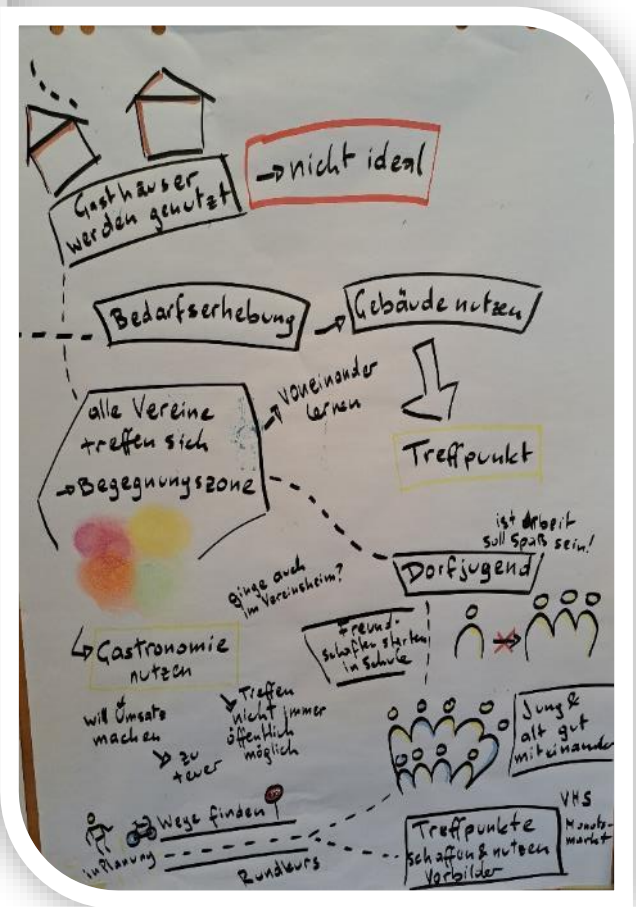 Gasthäuser
werden genutzt
→ nicht ideal
Bedarfserhebung
→ Gebäude nutzen
Treffpunkt
alle Vereine
treffen sich
→ Begegnungszone
→ voneinander
lernen
ist Arbeit
soll Spaß sein!
Dorfjugend
ginge auch
im Vereinsheim?
Freund-
schaften starten
in Schule
Gastronomie
nutzen
will Umsatz
machen
zu
teuer
Treffen
nicht immer
öffentlich
möglich
Jung &
alt gut
miteinander
Wege finden
in Planung
Rundkurs
Treffpunkte
schaffen & nutzen
Vorbilder
VHS
Monats-
markt